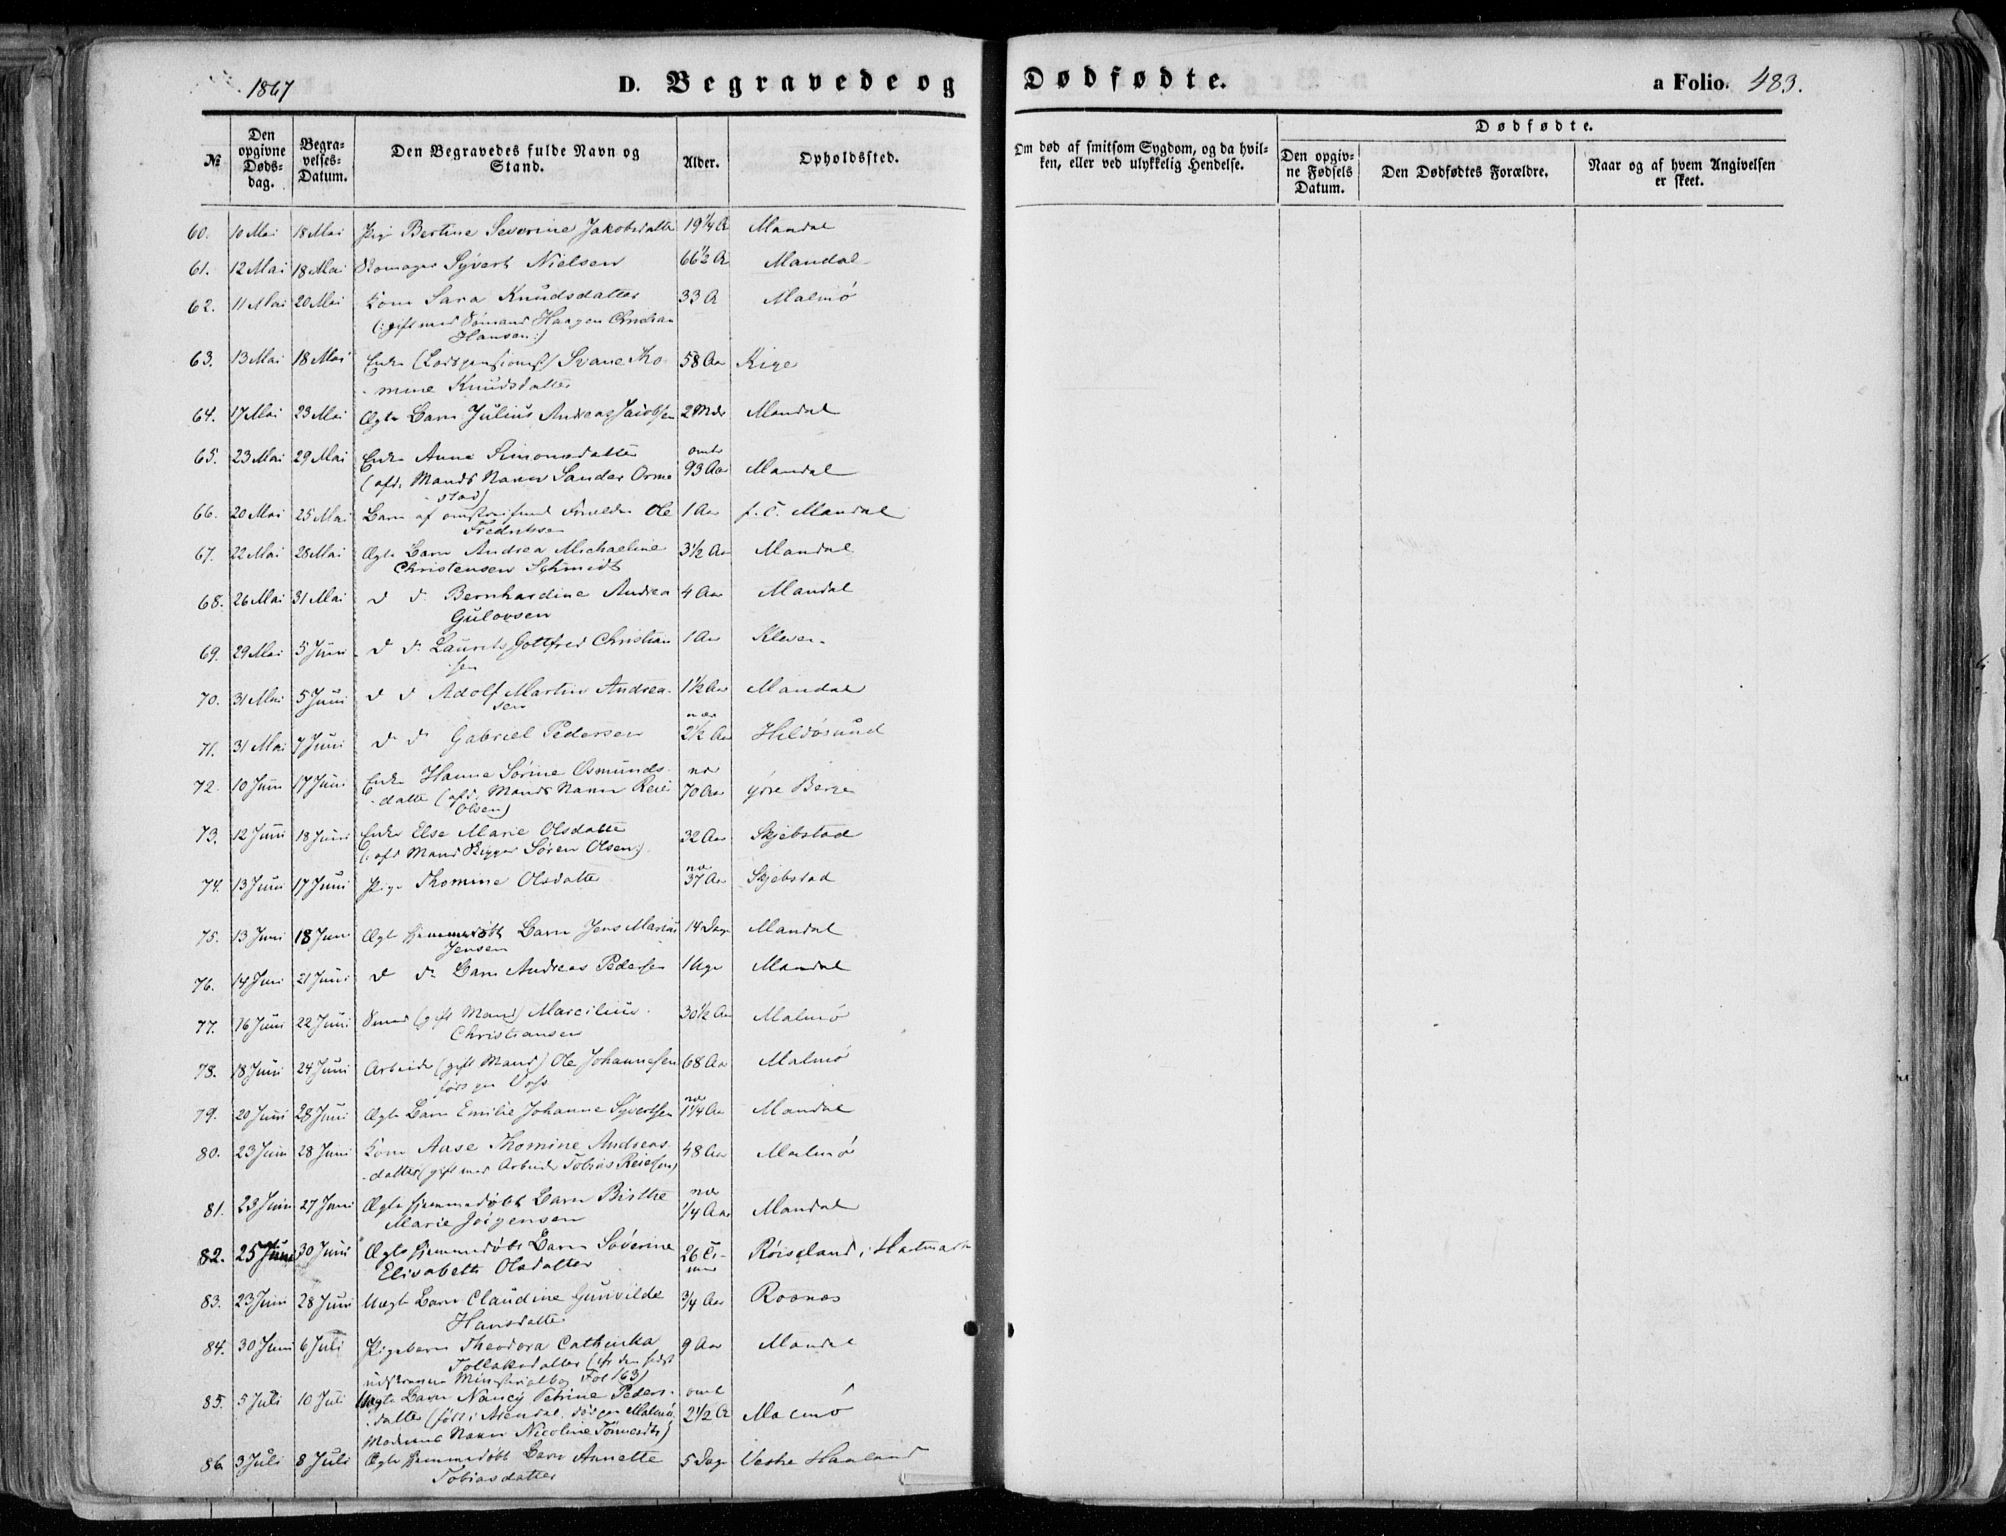 1867 D. Begravede og Dødfødte. a Folio. 483.
№ Den opgivne Dødsdag. Begravelses-Datum. Den Begravedes fulde Navn og Stand. Alder. Opholdssted. Om død af smitsom Sygdom, og da hvilken, eller ved ulykkelig Hendelse. Dødfødte. Den opgivne Fødsels Datum. Den Dødfødtes Forældre. Naar og af hvem Angivelsen er skeet.
60. 10 Mai 18 Mai Pige Bertine Severine Jakobsdatter 19 1/4 A Mandal
61. 12 Mai 18 Mai Skomager Syvert Nielsen 66 1/2 A Mandal
62. 11 Mai 20 Mai Kone Sara Knudsdatter 33 A Malmø
(: gift med Sømand Haagen Christian
Hansen :)
63. 13 Mai 18 Mai Enke Svane Tho- 58 Aar Kige
mine Knudsdatter
64. 17 Mai 23 Mai Ægte Barn Julius Andreas Jacobsen 2 Mdr Mandal
65. 23 Mai 29 Mai Enke Anne Simonsdatter omtr
(afd. Mands Navn Sander Orme- 93 Aar Mandal
stad)
66. 20 Mai 25 Mai Barn af omstreifende Forældre Ole 1 Aar f. T. Mandal
Fredriksen
67. 22 Mai 28 Mai Ægte Barn Andrea Michaeline 3 1/2 Aar Mandal
Christensen Schmidt
68. 26 Mai 31 Mai d d. Bernhardine Andrea 4 Aar Mandal
Gulovsen
69. 29 Mai 5 Juni d d. Laurits Gottfred Christian- 1 Aar Kleven
sen
70. 31 Mai 5 Juni d d Adolf Martin Andrea- 1 1/2 Aar Mandal
sen
71. 31 Mai 7 Juni d d Gabriel Pedersen nær 2 1/2 Aar Hildøsund
72. 10 Juni 17 Juni Enke Hanne Sørine Osmunds- nær
datter (afd. Mands Navn Reie 70 Aar Berge
Olsen)
73. 12 Juni 18 Juni Enke Else Marie Olsdatter 32 Aar Skjebstad
(: afd Mand Rigger Søren Olsen :)
74. 13 Juni 17 Juni Pige Thomine Olsdatter nær 37 Aar Skjebstad
75. 13 Juni 18 Juni Ægte hjemmedøbt Barn Jens Marius 14 Dage Mandal
Jensen
76. 14 Juni 21 Juni d d. Barn Andreas Pedersen 1 Uge Mandal
77. 16 Juni 22 Juni Smed (gift Mand) Marcilius 30 1/2 Aar Malmø
Christiansen
78. 18 Juni 24 Juni Arbeider (gift Mand) Ole Johannesen 68 Aar Malmø
født paa Voss
79. 20 Juni 28 Juni Ægte Barn Emilie Johanne Syvertsen nær 1 1/4 Aar Mandal
80. 23 Juni 28 Juni Kone Aase Thomine Andreas- 48 Aar Malmø
datter (gift med Arbeider Tobias Reiersen)
81. 23 Juni 27 Juni Ægte hjemmedøbt Barn Birthe nær 1/4 Aar Mandal
Marie Jørgensen
82. 25 Juni 30 Juni Ægte hjemmedøbt Barn Søverine 26 Ti- Røiseland i Halmark
Elisabeth Olsdatter mer
83. 23 Juni 28 Juni Uægte Barn Claudine Gunvilde 3/4 Aar Rosnæs
Hansdatter
84. 30 Juni 6 Juli Pigebarn Theodora Cathinka 9 Aar Mandal
Tollaksdatter (efr den sidst
udskrevne Ministerialbog Fol 163)
85. 5 Juli 10 Juli Uægte Barn Nancy Petrine Peders- omt
datter (født i Arendal, død paa Malmø, 2 1/2 A Malmø
Moderens Navn Nicoline Tønnesdtr)
86. 3 Juli 8 Juli Ægte hjemmedøbt Barn Annette 5 Dage Vestre Haaland
Tobiasdatter